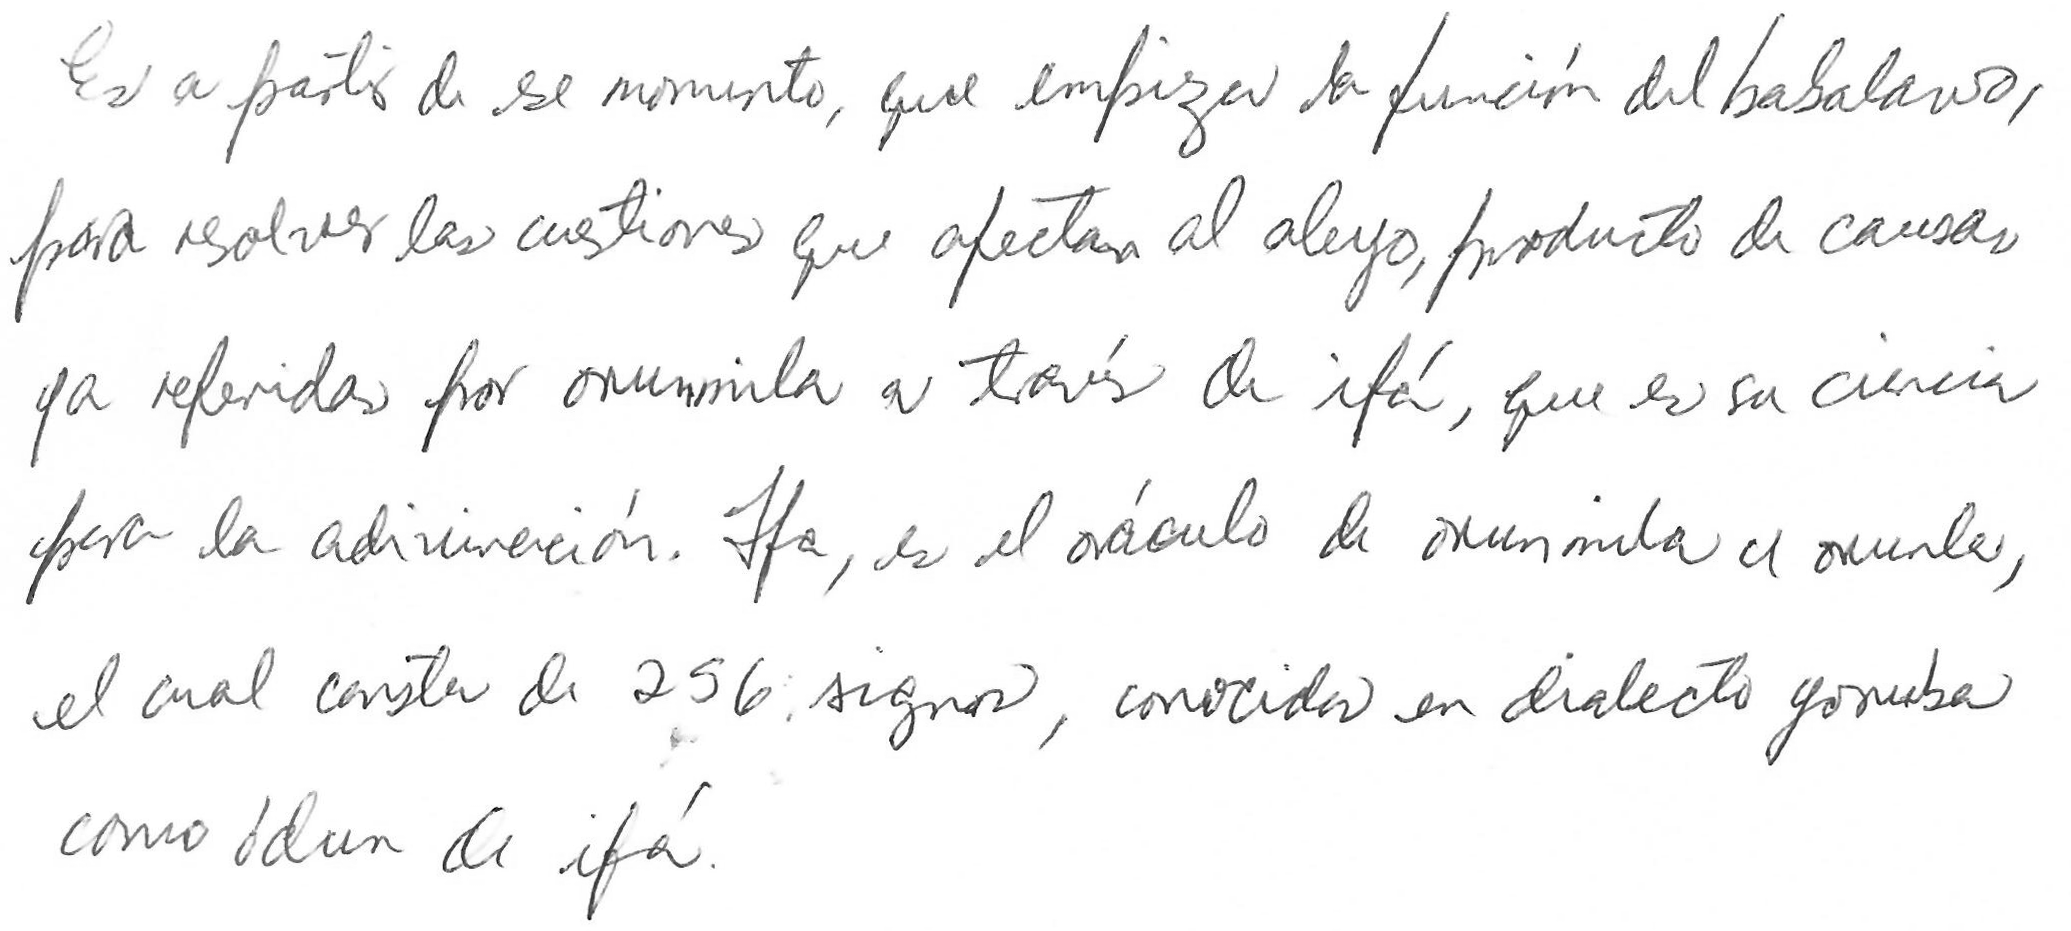 Es a partir de ese momento, que empieza la función del babalawo,
para resolver las cuestiones que afectan al aleyo, producto de causas
ya referidas por orunmila a través de ifá, que es su ciencia
para la adivinación. Ifa, es el oráculo de orunmila u orunla,
el cual consta de 256 signos, conocidos en dialecto yoruba
como ódun de ifá.